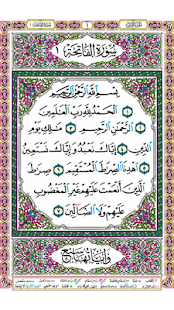 سُورَةُ الفَاتِحَةِ
بِسْمِ اللَّهِ الرَّحْمَٰنِ الرَّحِيمِ
الْحَمْدُ لِلَّهِ رَبِّ الْعَالَمِينَ
الرَّحْمَٰنِ الرَّحِيمِ مَالِكِ يَوْمِ
الدِّينِ إِيَّاكَ نَعْبُدُ وَإِيَّاكَ نَسْتَعِينُ
اهْدِنَا الصِّرَاطَ الْمُسْتَقِيمَ صِرَاطَ
الَّذِينَ أَنْعَمْتَ عَلَيْهِمْ غَيْرِ الْمَغْضُوبِ
عَلَيْهِمْ وَلَا الضَّالِّينَ